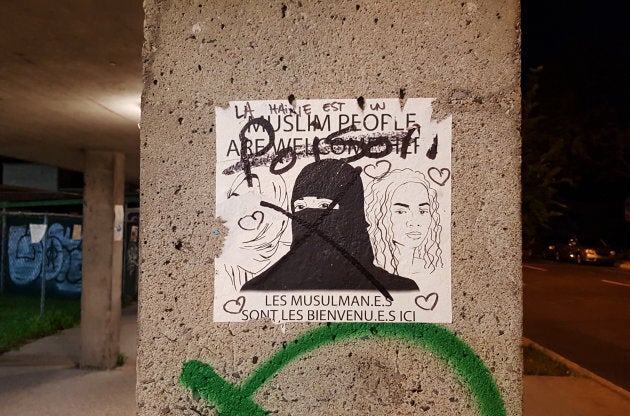 LA HAINE EST UN
MUSLIM PEOPLE
ARE WELCOME HERE
POISON
LES MUSULMAN.E.S
SONT LES BIENVENU.E.S ICI